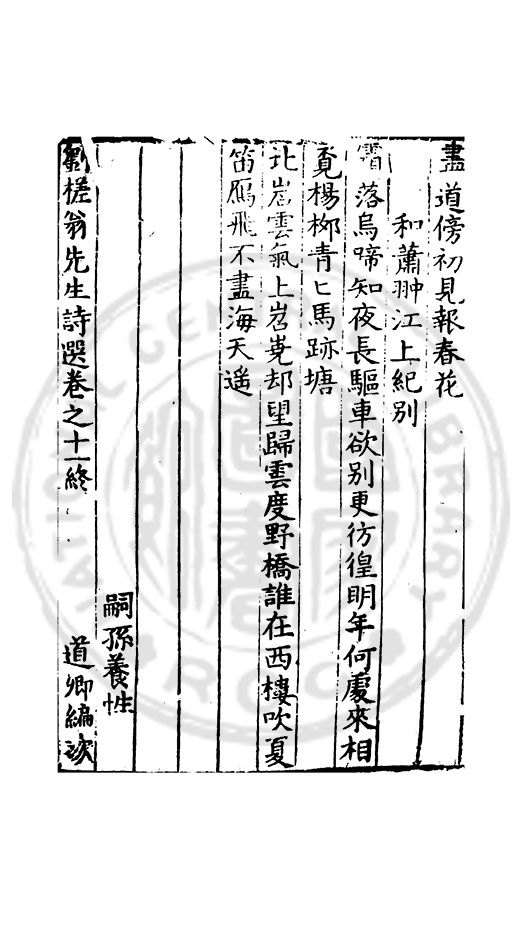 盡道傍初見報春花
和蕭翀江上紀別
霜落烏啼知夜長驅車欲别更彷徨明年何處來相
覓楊栁青匕馬跡塘
北嵓雲氣上岧嶤却望歸雲度野橋誰在西樓吹夏
笛鴈飛不盡海天遥
嗣孫養性
劉槎翁先生詩選卷之十一終
道卿編次